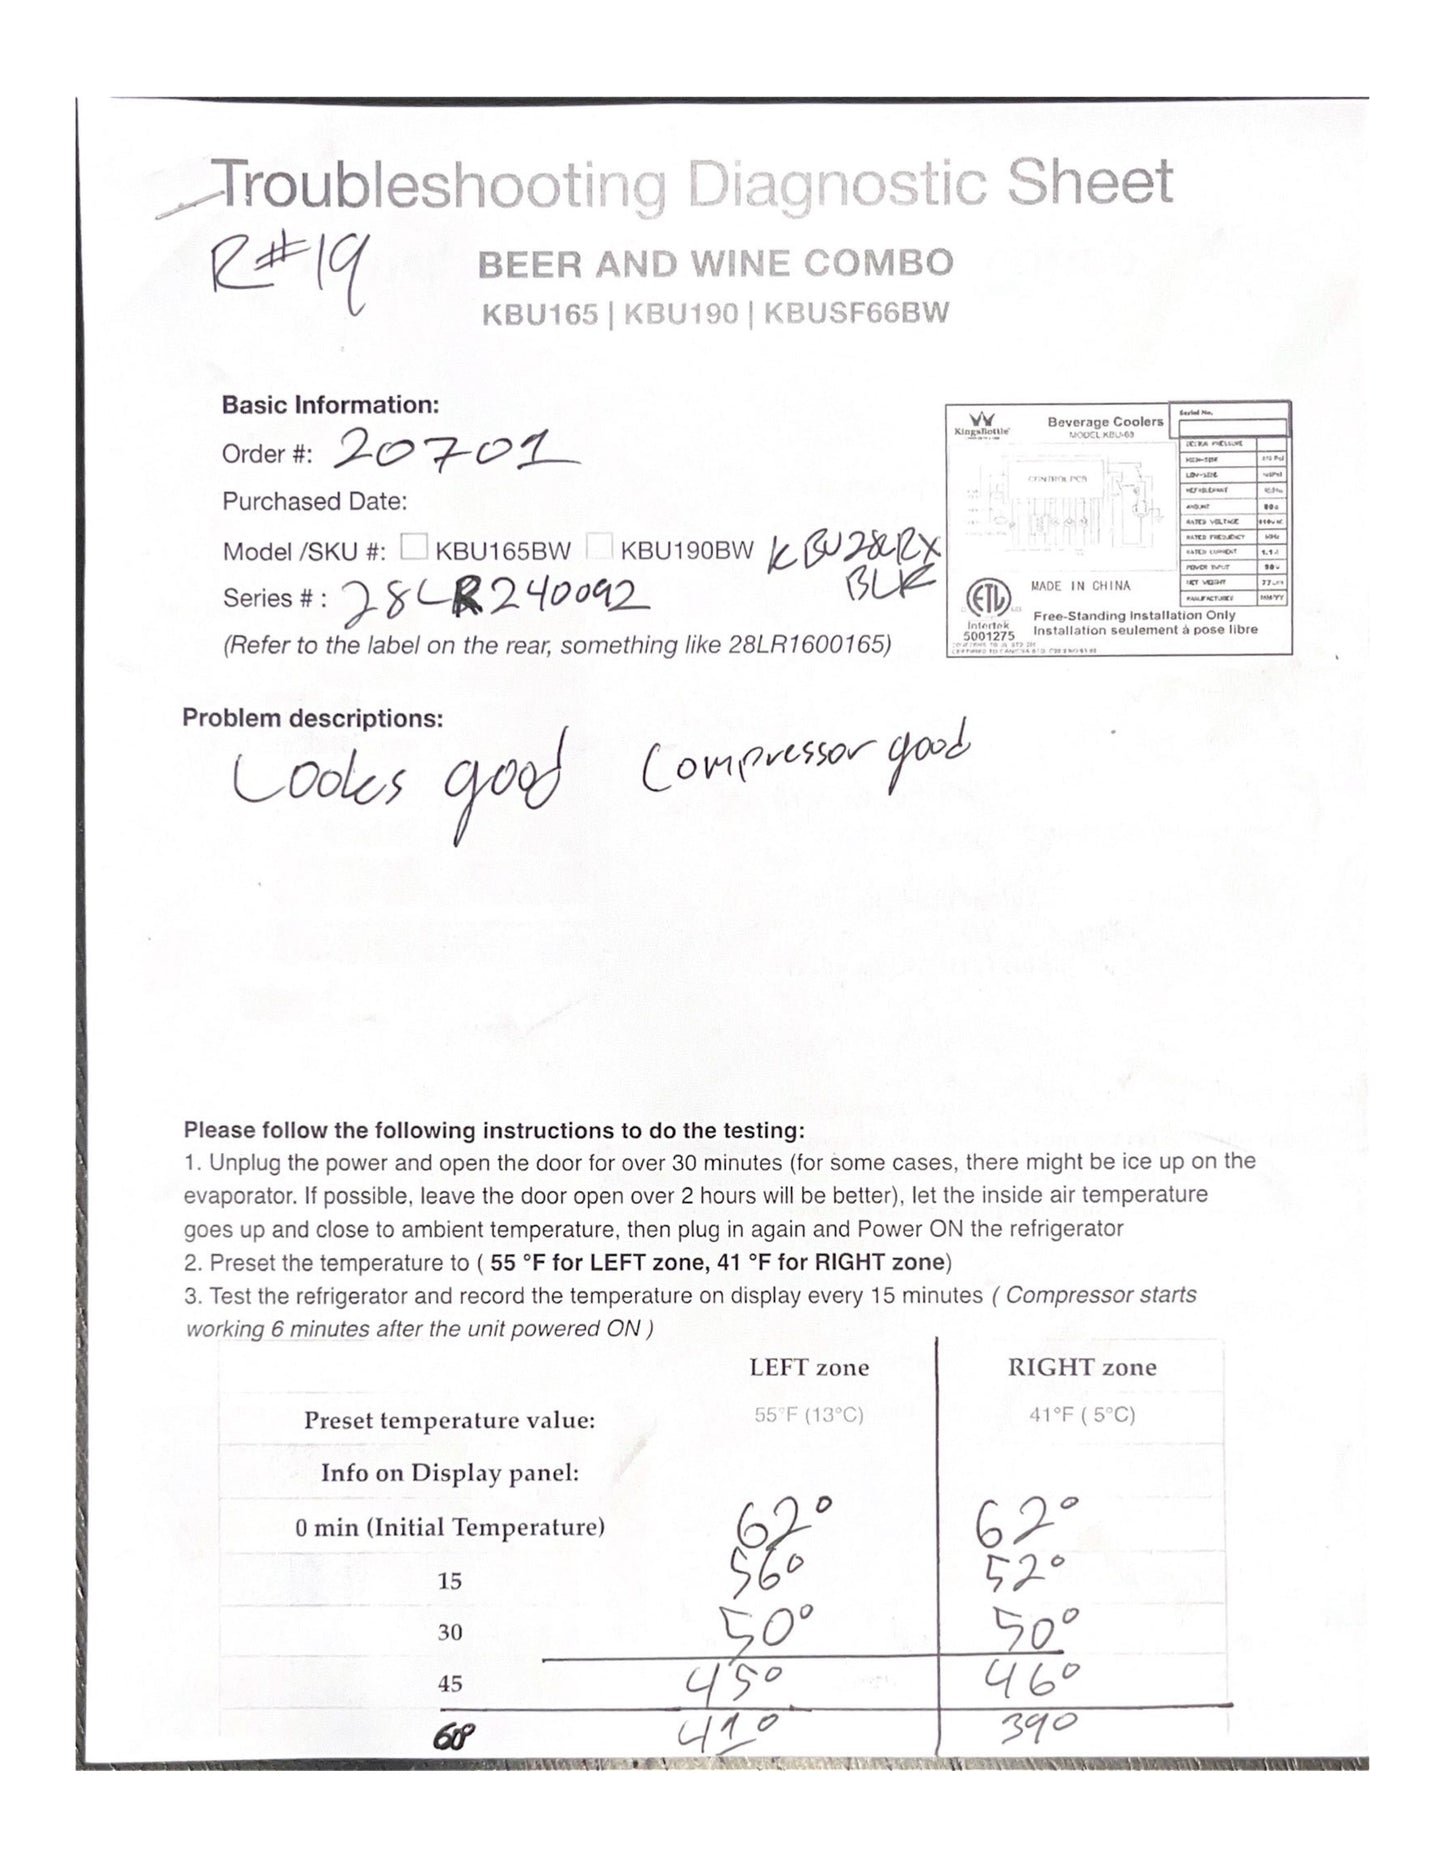 Troubleshooting Diagnostic Sheet
R#19
BEER AND WINE COMBO
KBU165 | KBU190 | KBUSF66BW
Basic Information:
Order #: 20701
Purchased Date:
Model /SKU #: KBU165BW KBU190BW KBU28RX
BLK
Series # : 28LR240092
(Refer to the label on the rear, something like 28LR1600165)
KingsBottle
Beverage Coolers
Serial No.
CONTROL PCB
RATED VOLTAGE
RATED FREQUENCY
RATED CURRENT
POWER INPUT
NET WEIGHT
MADE IN CHINA
ETL
Intertek
5001275
Free-Standing Installation Only
Installation seulement à pose libre
Problem descriptions:
Looks good Compressor good
Please follow the following instructions to do the testing:
1. Unplug the power and open the door for over 30 minutes (for some cases, there might be ice up on the
evaporator. If possible, leave the door open over 2 hours will be better), let the inside air temperature
goes up and close to ambient temperature, then plug in again and Power ON the refrigerator
2. Preset the temperature to ( 55 °F for LEFT zone, 41 °F for RIGHT zone)
3. Test the refrigerator and record the temperature on display every 15 minutes ( Compressor starts
working 6 minutes after the unit powered ON )
LEFT zone RIGHT zone
Preset temperature value: 55°F (13°C) 41°F ( 5°C)
Info on Display panel:
0 min (Initial Temperature) 62° 62°
15 56° 52°
30 50° 50°
45 45° 46°
60 41° 39°